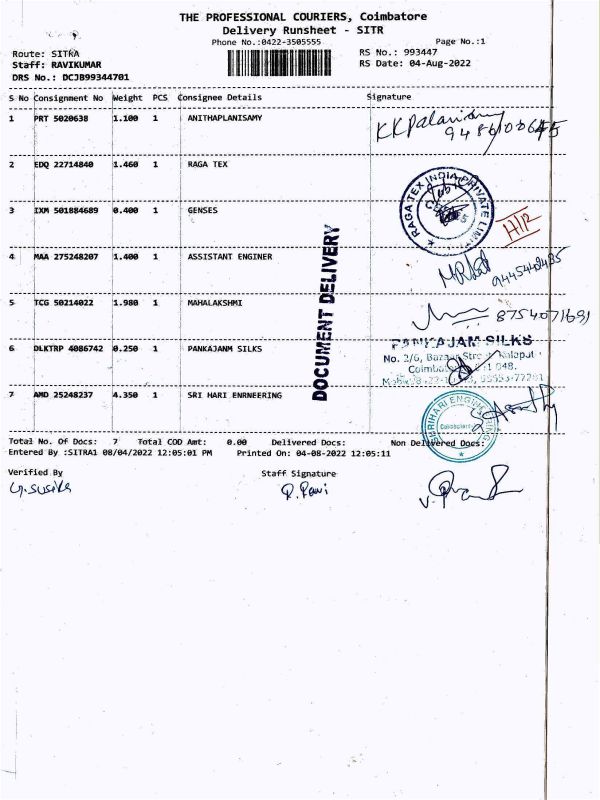 THE PROFESSIONAL COURIERS, Coimbatore
Delivery Runsheet - SITR
Phone No.:0422-3505555
Page No.:1
Route: SITRA
RS No.: 993447
Staff: RAVIKUMAR
RS Date: 04-Aug-2022
DRS No.: DCJB99344701
S No Consignment No Weight PCS Consignee Details Signature
1 PRT 5020638 1.100 1 ANITHAPLANISAMY
KKPalanisamy
2 EDQ 22714840 1.460 1 RAGA TEX
RAGATEX INDIA PRIVATE LIMI
3 IXM 501884689 0.400 1 GENSES
H/R
4 MAA 275248207 1.400 1 ASSISTANT ENGINER
5 TCG 50214022 1.980 1 MAHALAKSHMI
8754071691
DOCUMENT DELIVERY
6 DLKTRP 4086742 0.250 1 PANKAJANM SILKS
PANKAJAM SILKS
No. 2/6,
7 AMD 25248237 4.350 1 SRI HARI ENRNEERING
SHRIHARI ENGINEERING
Total No. Of Docs: 7 Total COD Amt: 0.00 Delivered Docs: Non Delivered Docs:
Entered By :SITRA1 08/04/2022 12:05:01 PM Printed On: 04-08-2022 12:05:11
Verified By
Staff Signature
G.Susila
R.Ravi